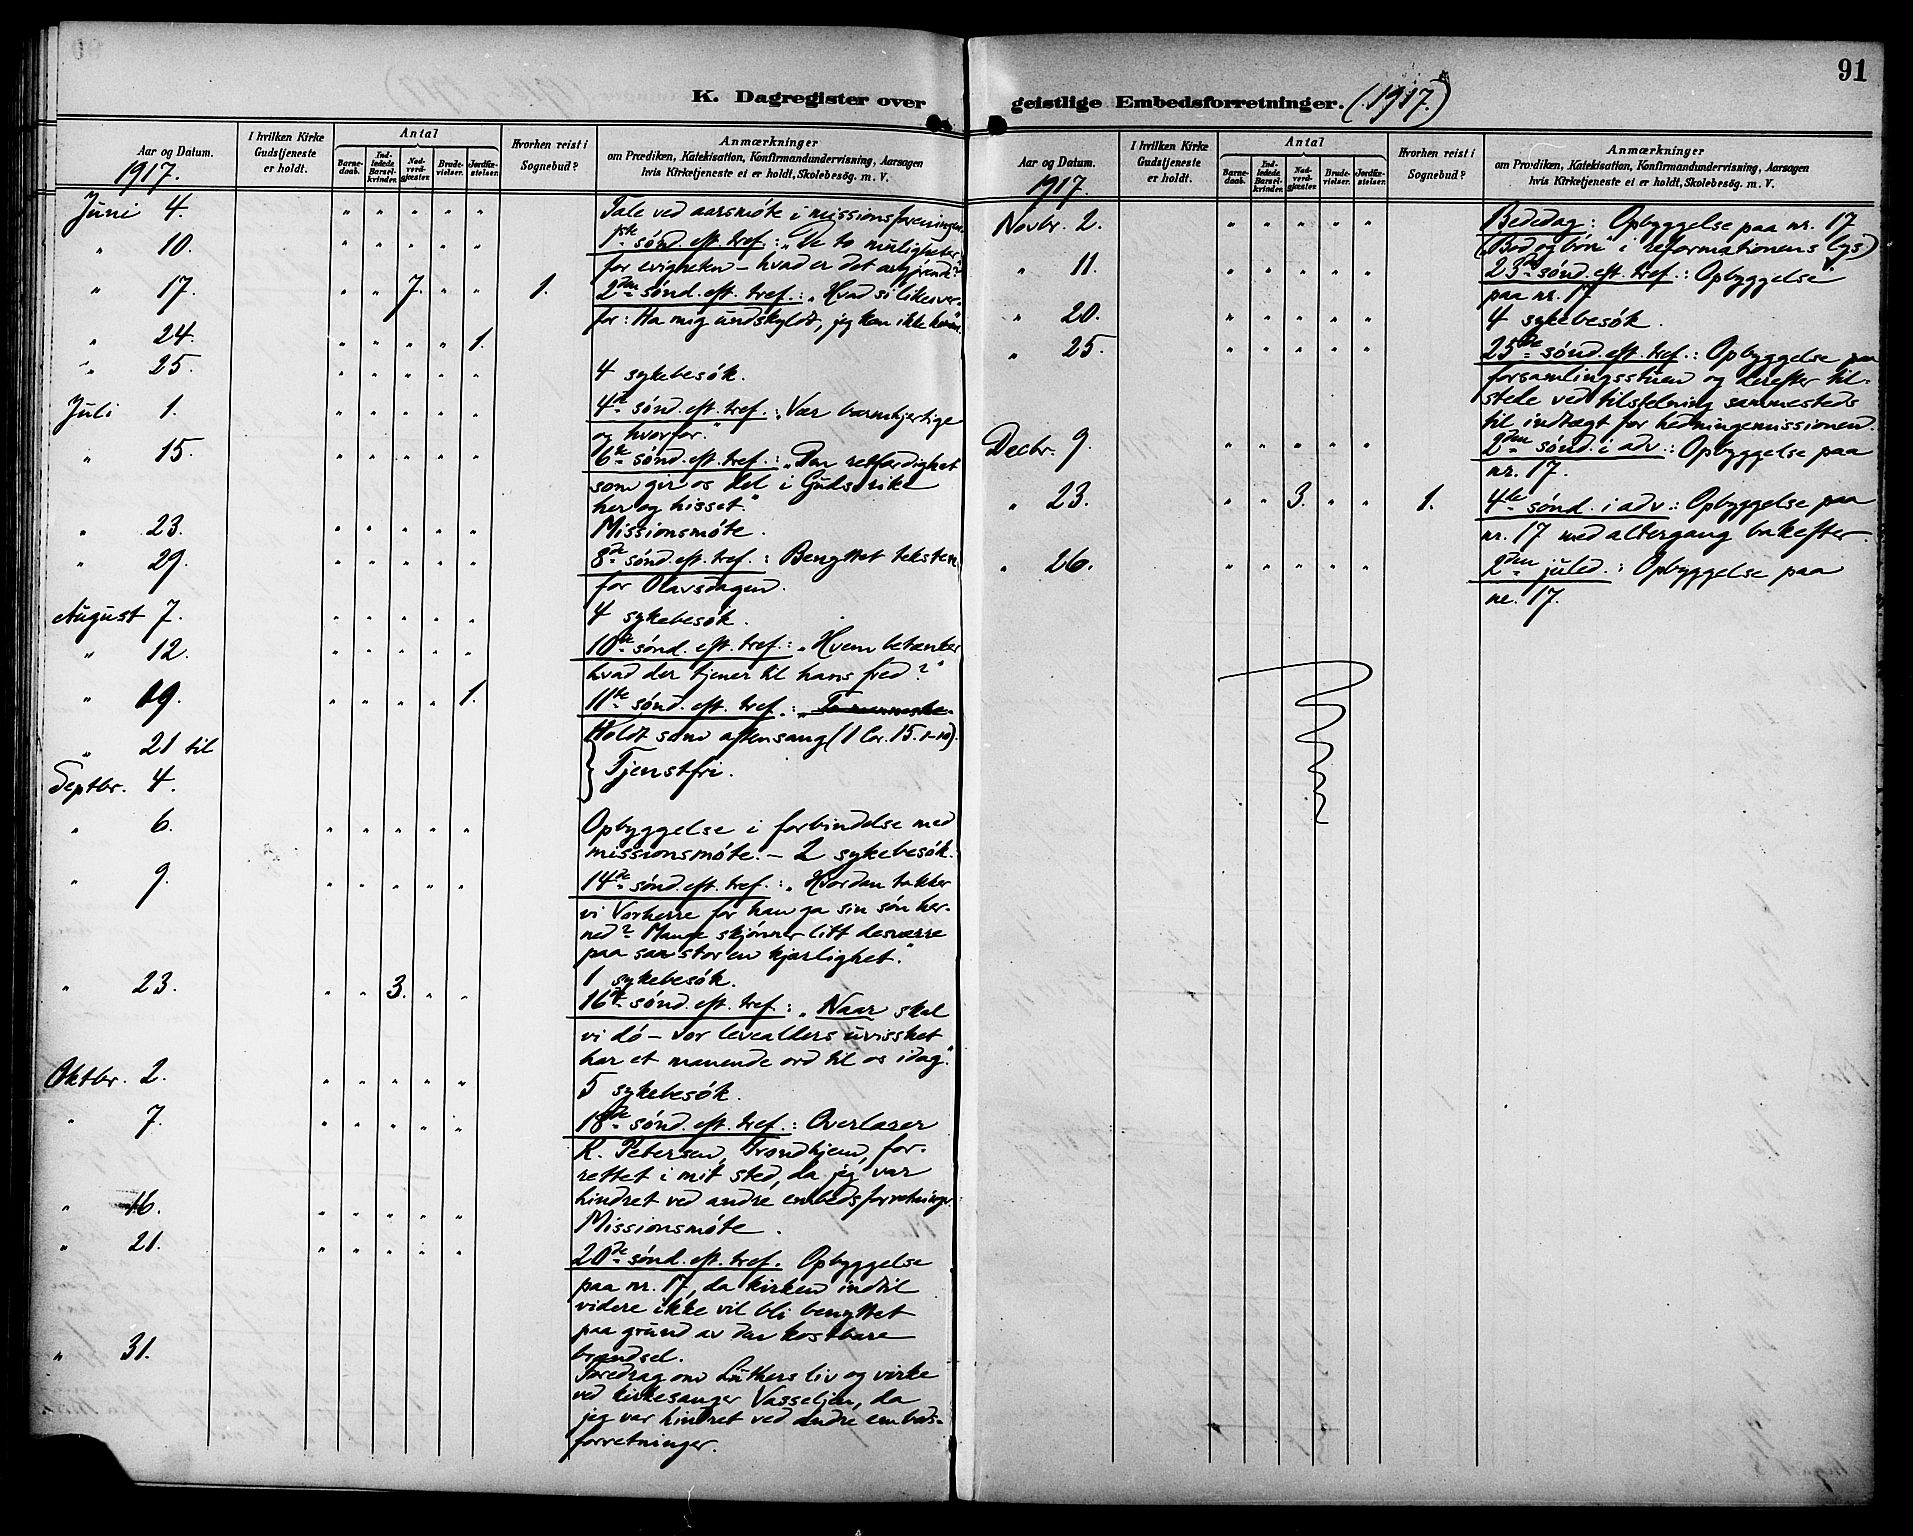 91
K. Dagregister over geistlige Embedsforretninger. (1917.)
Aar og Datum.
1917.
I hvilken Kirke Gudstjeneste er holdt.
Antal
Barnedaab.
Indledede Barselkvinder.
Nadverdgjæster.
Brudevielser.
Jordfæstelser.
Hvorhen reist i Sognebud?
Anmærkninger
om Prædiken, Katekisation, Konfirmandundervisning, Aarsagen
hvis Kirketjeneste ei er holdt, Skolebesøg. m. V.
Juni 4. " " " " " Tale ved aarsmøte i missionsforeningen.
" 10. " " " " " 1ste sønd. eft. tref.: „De to muligheter
for evigheten – hvad er det avgjørende?"
" 17. " " 7. " " 1. 2den sønd. eft. tref.: „Hvad si likeoverfor: Ha mig undskyldt, jeg kan ikke komme"
" 24. " " " " 1.
" 25. " " " " " 4 sykebesøk.
Juli 1. " " " " " 4de sønd. eft. tref.: „Vær barmhjertige
og hvorfor."
" 15. " " " " " 6te sønd. eft. tref.: „Den retfærdighet
som gir os del i Guds rike
her og hisset."
" 23. " " " " " Missionsmøte.
" 29. " " " " " 8de sønd. eft. tref.: Benyttet teksten
for Olavsdagen.
August 7. " " " " " 4 sykebesøk.
" 12. " " " " " 10de sønd. eft. tref.: „Hvem betænker
hvad der tjener til hans fred?"
" 19. " " " " 1. 11te sønd. eft. tref.: „To menneske-
Holdt som aftensang (1 Cor. 15. 1-10).
" 21 til
Septbr. 4. } Tjenstfri.
" 6. " " " " " Opbyggelse i forbindelse med
missionsmøte. – 2 sykebesøk.
" 9. " " " " " 14de sønd. eft. tref.: „Hvordan takker
vi Vorherre for han ga sin søn herned? Mange skjønner litt desværre
paa saa stor en kjærlighet."
1 sykebesøk.
" 23. " " 3. " " 16de sønd. eft. tref.: „Naar skal
vi dø – vor levealders uvisshet
har et manende ord til os idag."
Oktbr. 2. " " " " " 5 sykebesøk.
" 7. " " " " " 18de sønd. eft. tref.: Overlærer
K. Petersen, Trondhjem, forrettet i mit sted, da jeg var
hindret ved andre embedsforretninger.
" 16. " " " " " Missionsmøte.
" 21. " " " " " 20de sønd. eft. tref. Opbyggelse
paa nr. 17, da kirken indtil
videre ikke vil bli benyttet
paa grund av den kostbare
brændsel.
" 31. Foredrag om Luthers liv og virke
ved kirkesanger Vasseljen, da
jeg var hindret ved andre embedsforretninger.
Aar og Datum.
1917.
I hvilken Kirke Gudstjeneste er holdt.
Antal
Barnedaab.
Indledede Barselkvinder.
Nadverdgjæster.
Brudevielser.
Jordfæstelser.
Hvorhen reist i Sognebud?
Anmærkninger
om Prædiken, Katekisation, Konfirmandundervisning, Aarsagen
hvis Kirketjeneste ei er holdt, Skolebesög. m. V.
Novbr. 2. " " " " " Bededag: Opbyggelse paa nr. 17
(„Bod og bøn" i reformationens lys)
" 11. " " " " " 23de sønd. eft. tref.: Opbyggelse
paa nr. 17
" 20. " " " " " 4 sykebesøk.
" 25. " " " " " 25de sønd. eft. tref.: Opbyggelse paa
forsamlingsstuen og derefter tilstede ved tilstelning sammesteds
til indtægt for hedningemissionen.
Decbr. 9. " " " " " 2den sønd. i adv.: Opbyggelse paa
nr. 17.
" 23. " " 3. " " 1. 4de sønd. i adv.: Opbyggelse paa
nr. 17 med altergang bakefter.
" 26. " " " " " 2den juled.: Opbyggelse paa
nr. 17.